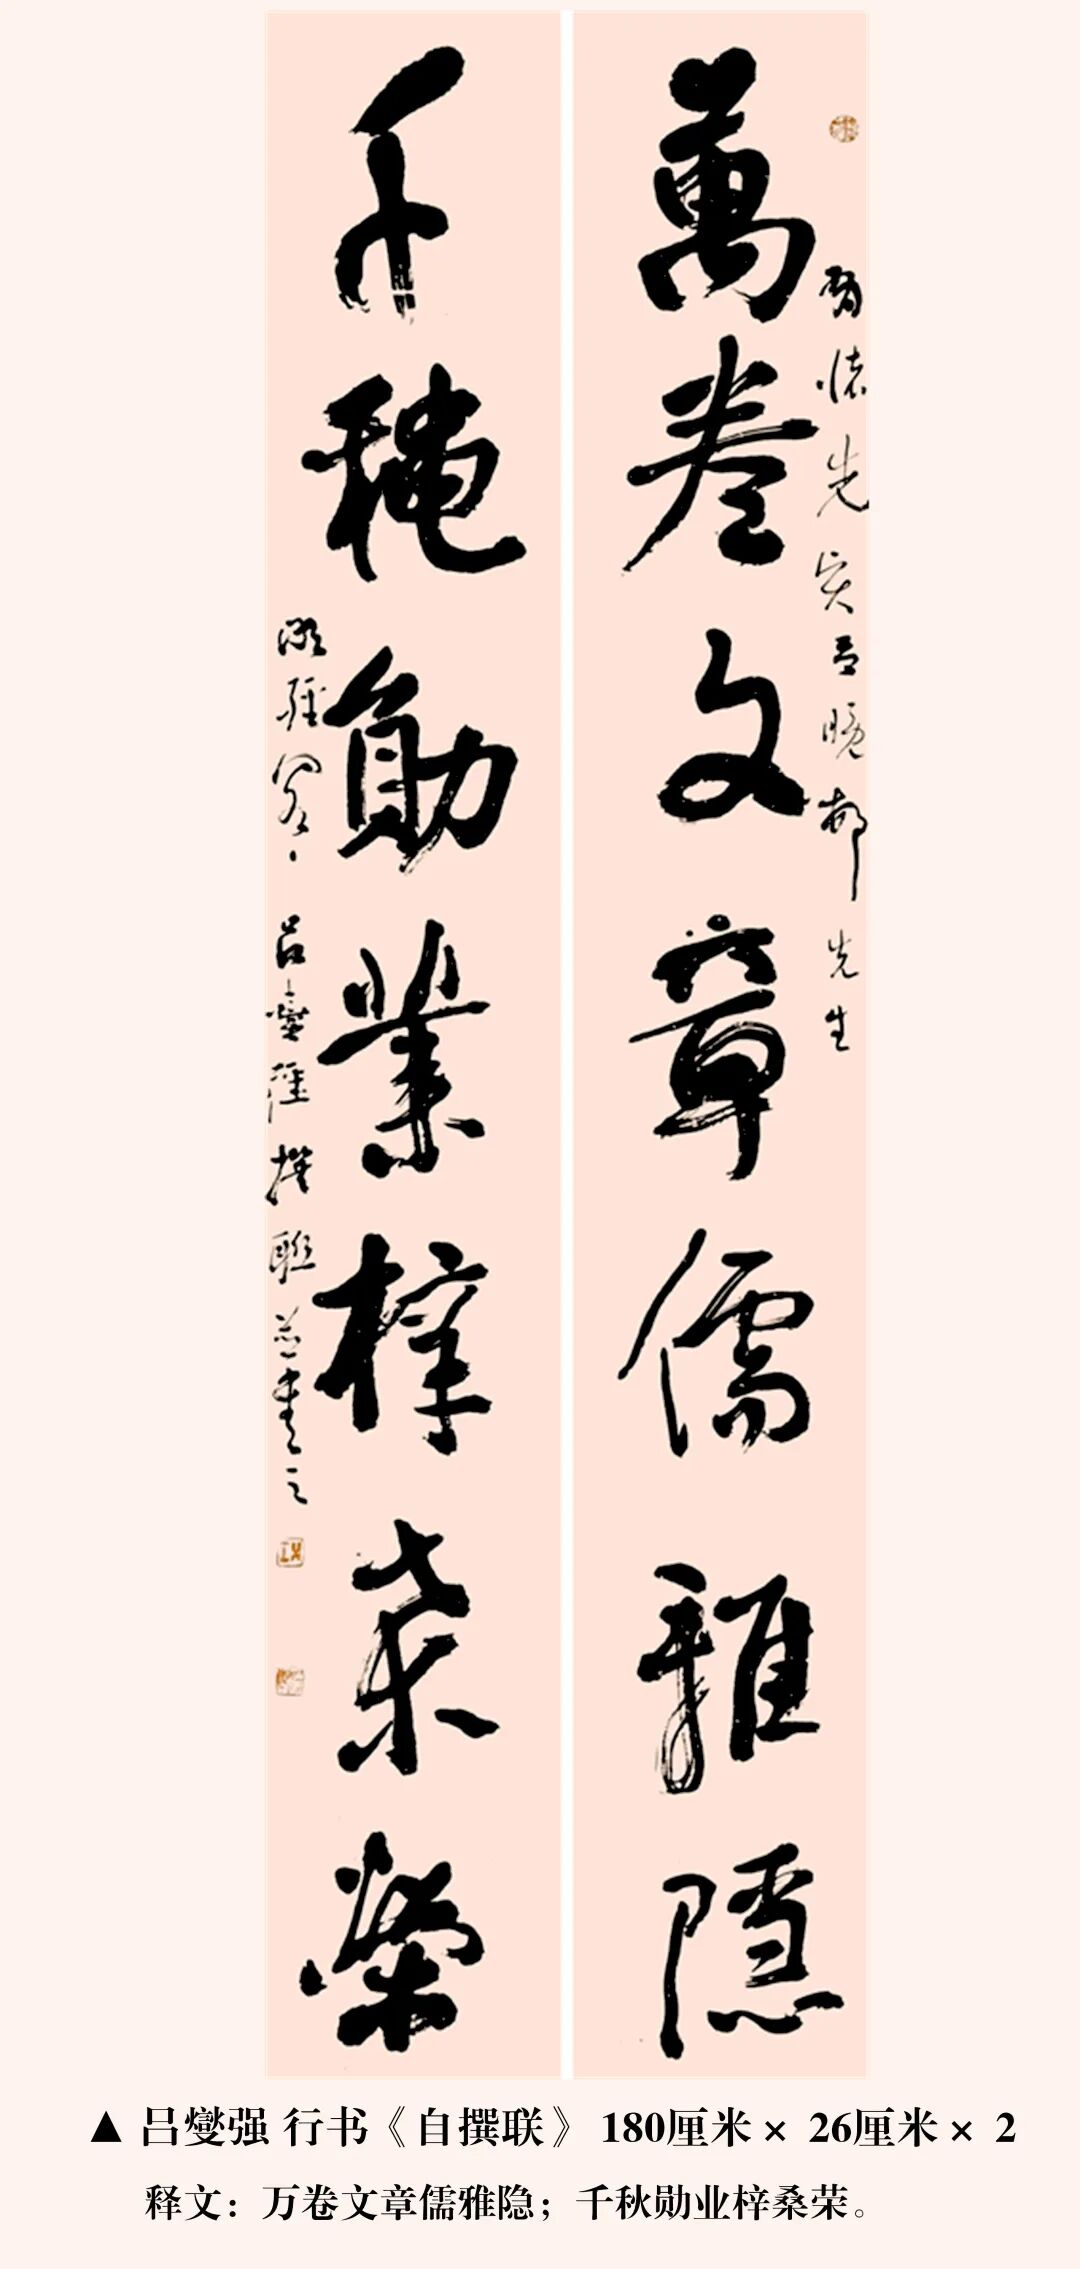 萬卷文章儒雅隱
懷先賢吕晚邨先生
千穐勛業梓桑榮
吕燮强撰聯並書之
▲ 吕燮强 行书《自撰联》 180厘米 × 26厘米 × 2
释文：万卷文章儒雅隐；千秋勋业梓桑荣。